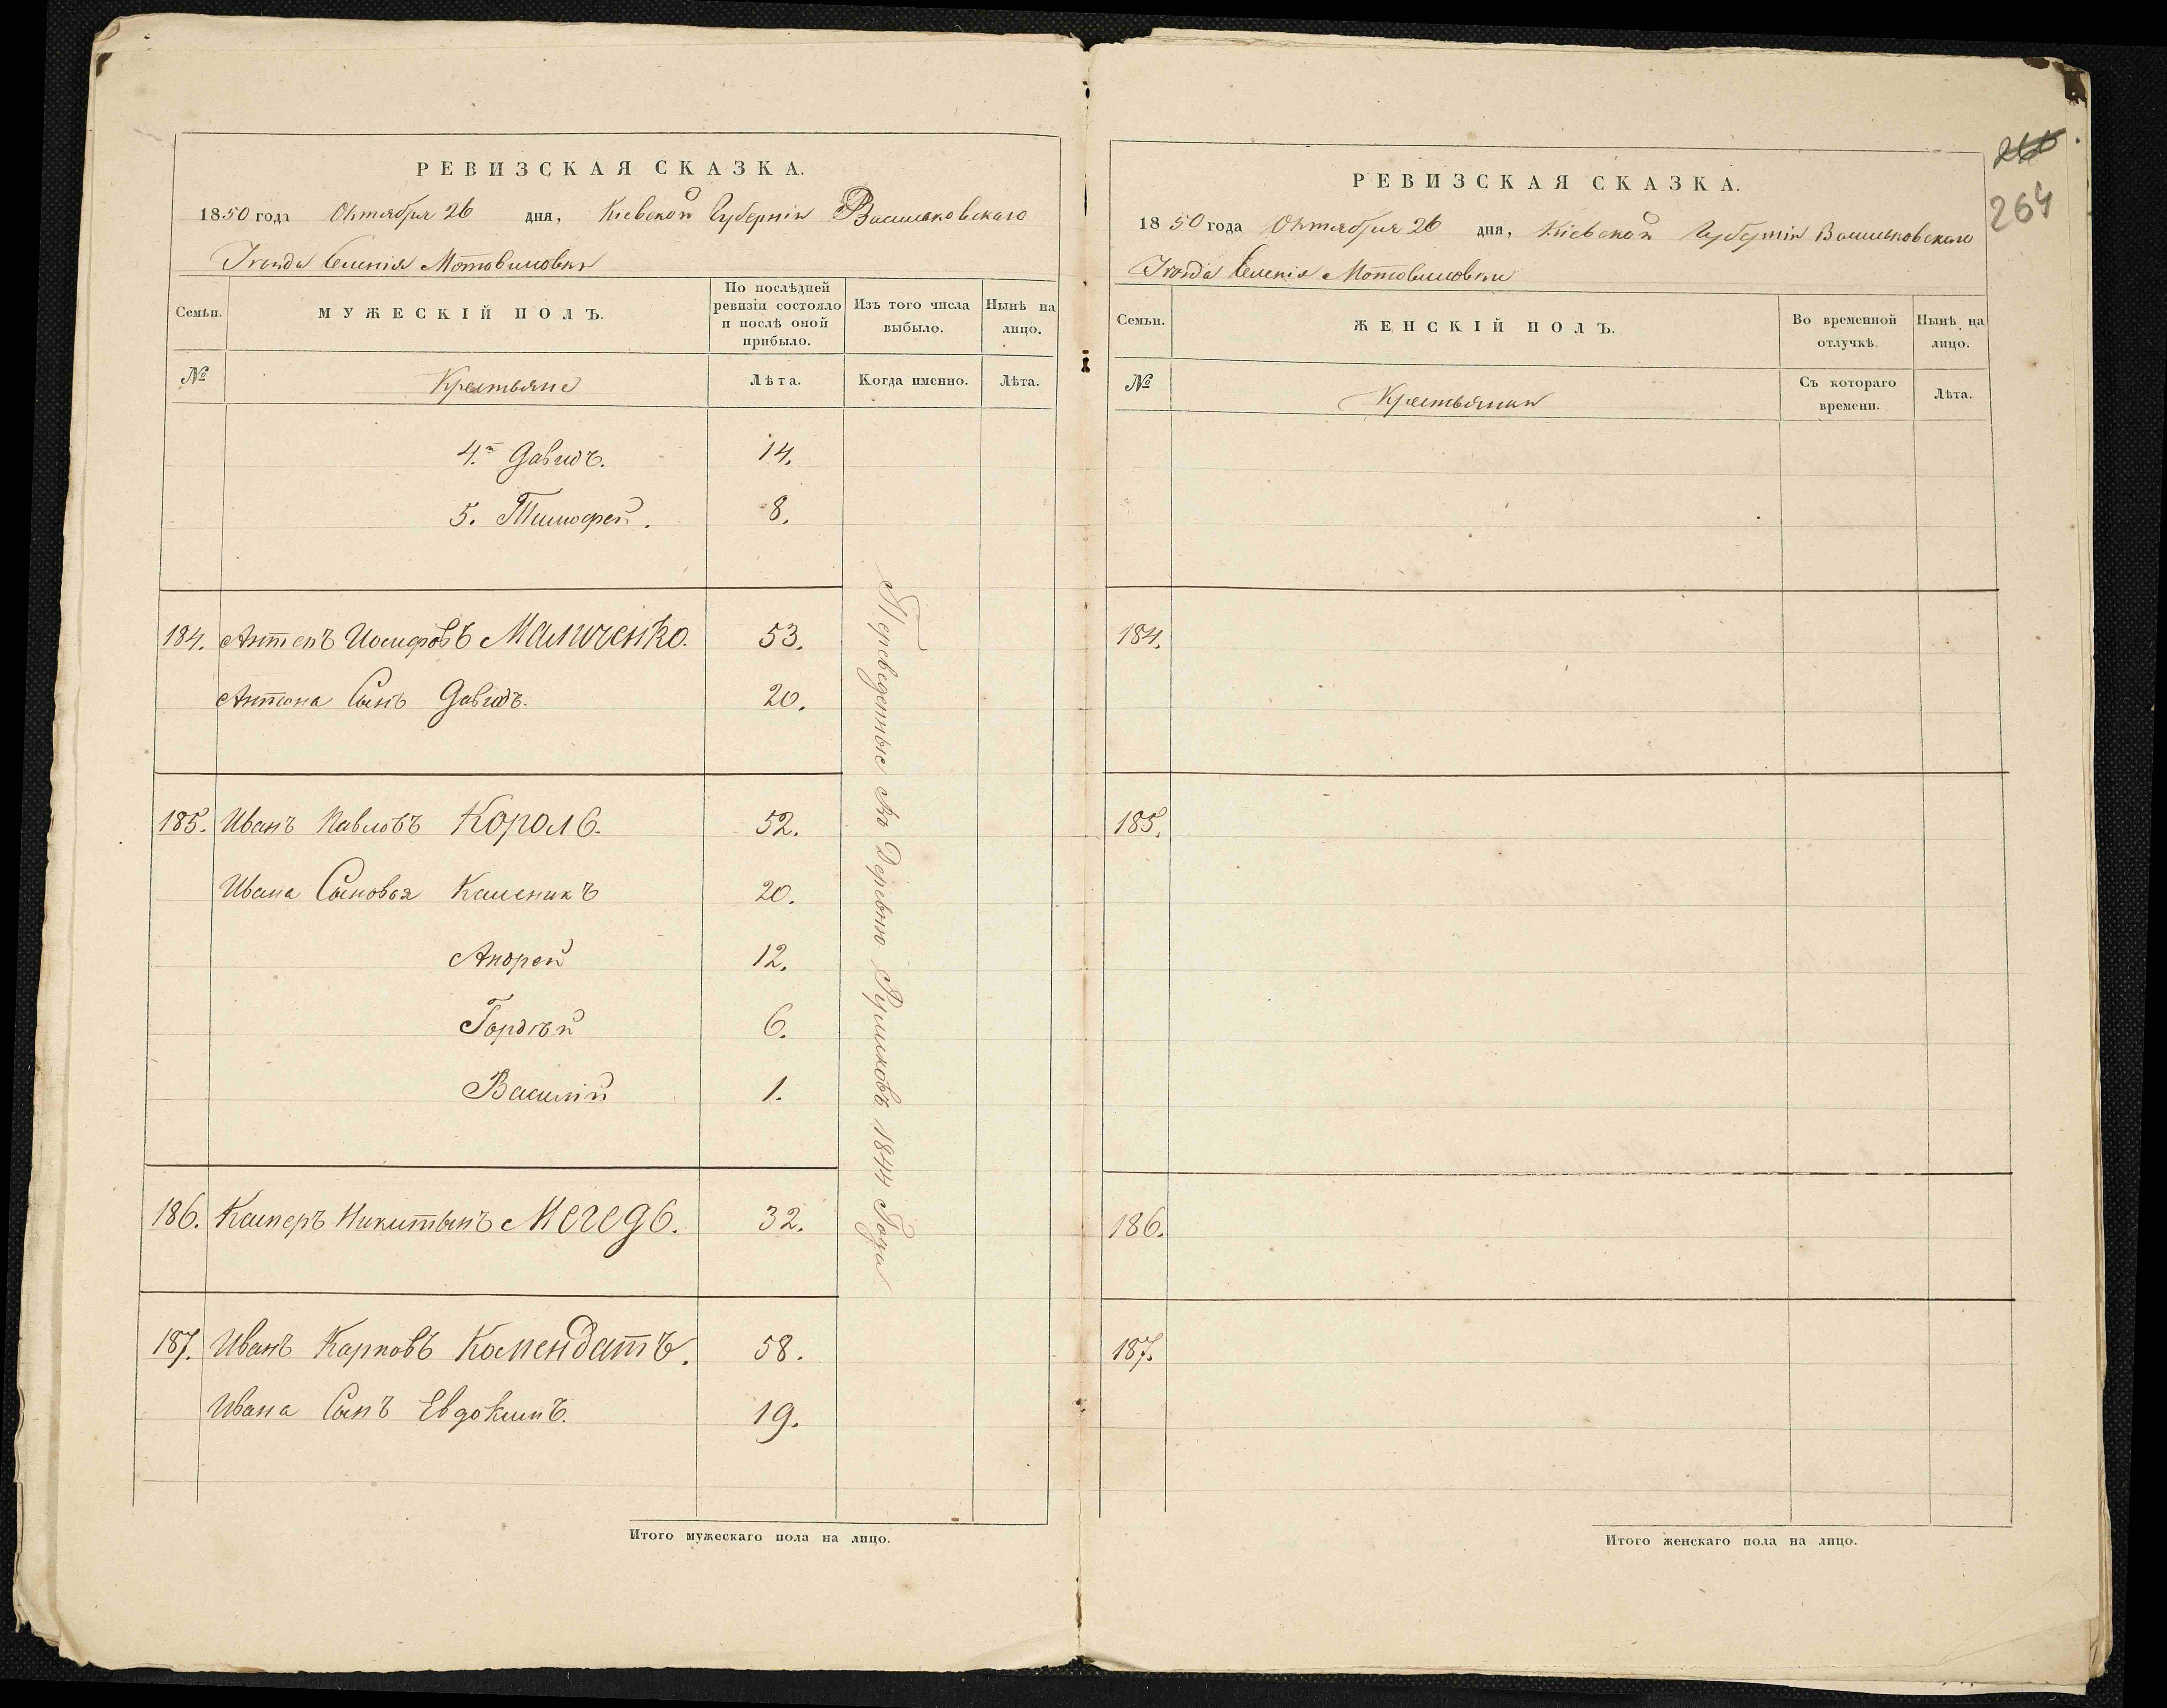 РЕВИЗСКАЯ СКАЗКА.
1850 года Октября 26 дня, Кіевской Губерніи Васильковскаго
Уѣзда Селенія Мотовиловки
Семьи.
МУЖЕСКІЙ ПОЛЪ.
По послѣдней ревизіи состояло и послѣ оной прибыло.
Изъ того числа выбыло.
Нынѣ на лицо.
№
Крестьяне
Лѣта.
Когда именно.
Лѣта.
4.й Давидъ. 14.
5. Тимофей. 8.
184. Антонъ Иосифовъ Мальченко. 53.
Антона Сынъ Давидъ. 20.
185. Иванъ Павловъ Король. 52.
Ивана Сыновья Каленикъ 20.
Андрей 12.
Гордѣй 6.
Василій 1.
186. Касперъ Никитынъ Мегедь. 32.
187. Иванъ Карповъ Комендатъ. 58.
Ивана Сынъ Евдокимъ. 19.
Переведенные Въ Деревню 1844 Года
Итого мужескаго пола на лицо.
264
РЕВИЗСКАЯ СКАЗКА.
1850 года Октября 26 дня, Кіевской Губерніи Васильковскаго
Уѣзда Селенія Мотовиловки
Семьи.
ЖЕНСКІЙ ПОЛЪ.
Во временной отлучкѣ.
Нынѣ на лицо.
№
Крестьянки
Съ котораго времени.
Лѣта.
184.
185.
186.
187.
Итого женскаго пола на лицо.